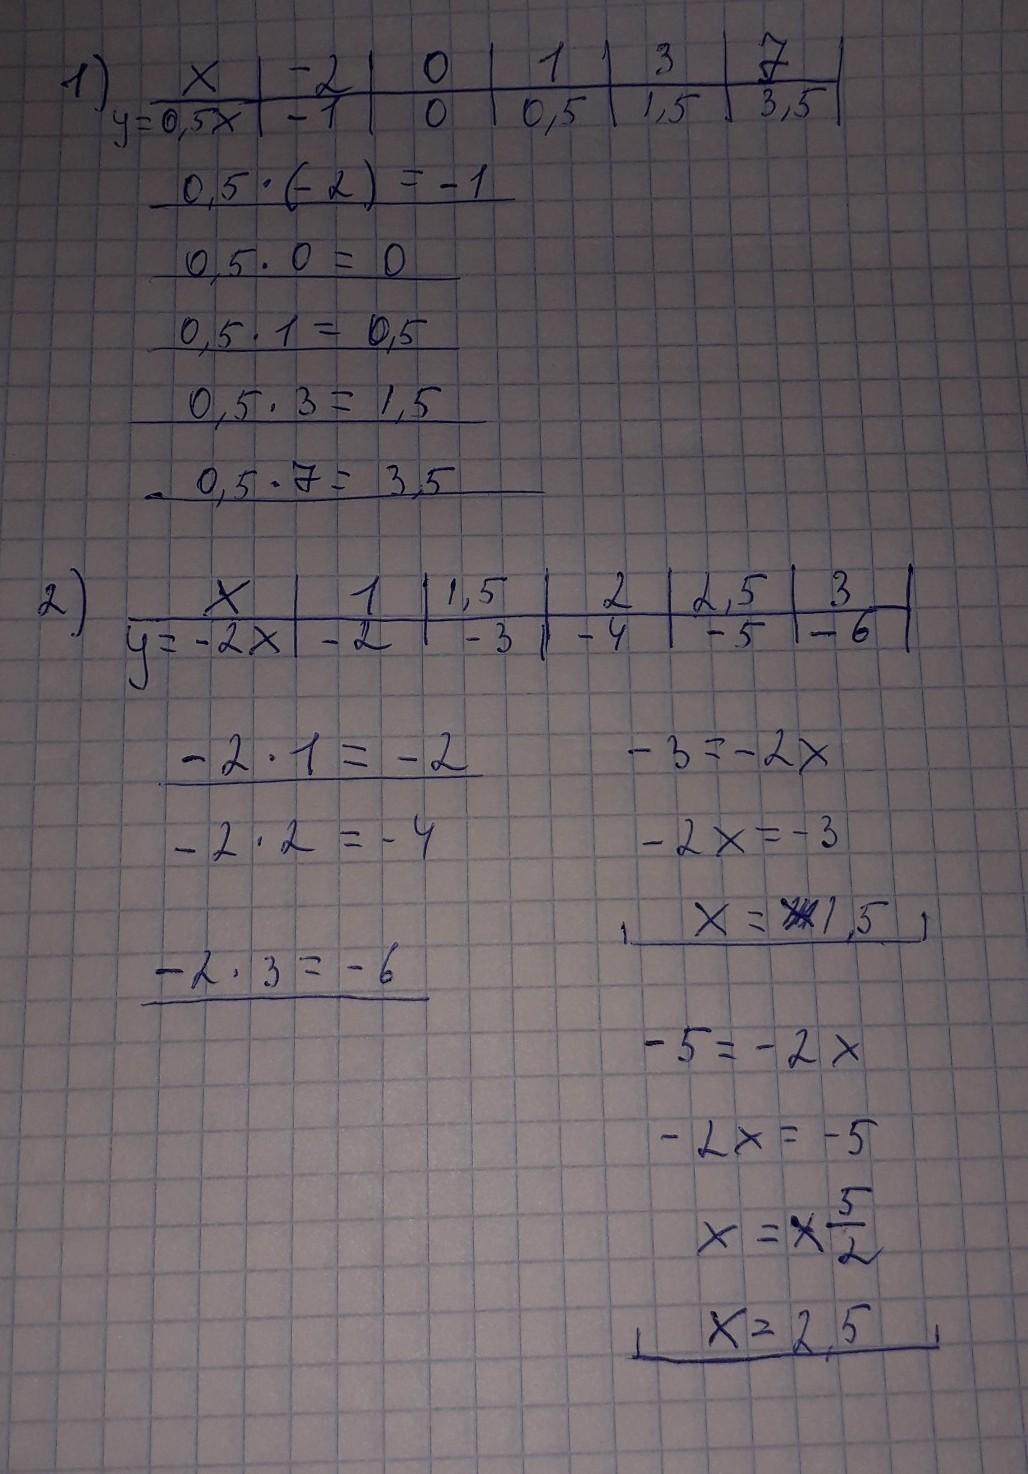 1) x | -2 | 0 | 1 | 3 | 7
y=0,5x | -1 | 0 | 0,5 | 1,5 | 3,5
0,5·(-2) = -1
0,5·0 = 0
0,5·1 = 0,5
0,5·3 = 1,5
0,5·7 = 3,5
2) x | 1 | 1,5 | 2 | 2,5 | 3
y=-2x | -2 | -3 | -4 | -5 | -6
-2·1 = -2
-2·2 = -4
-2·3 = -6
-3=-2x
-2x=-3
x = 1,5
-5=-2x
-2x=-5
x = 5/2
x=2,5